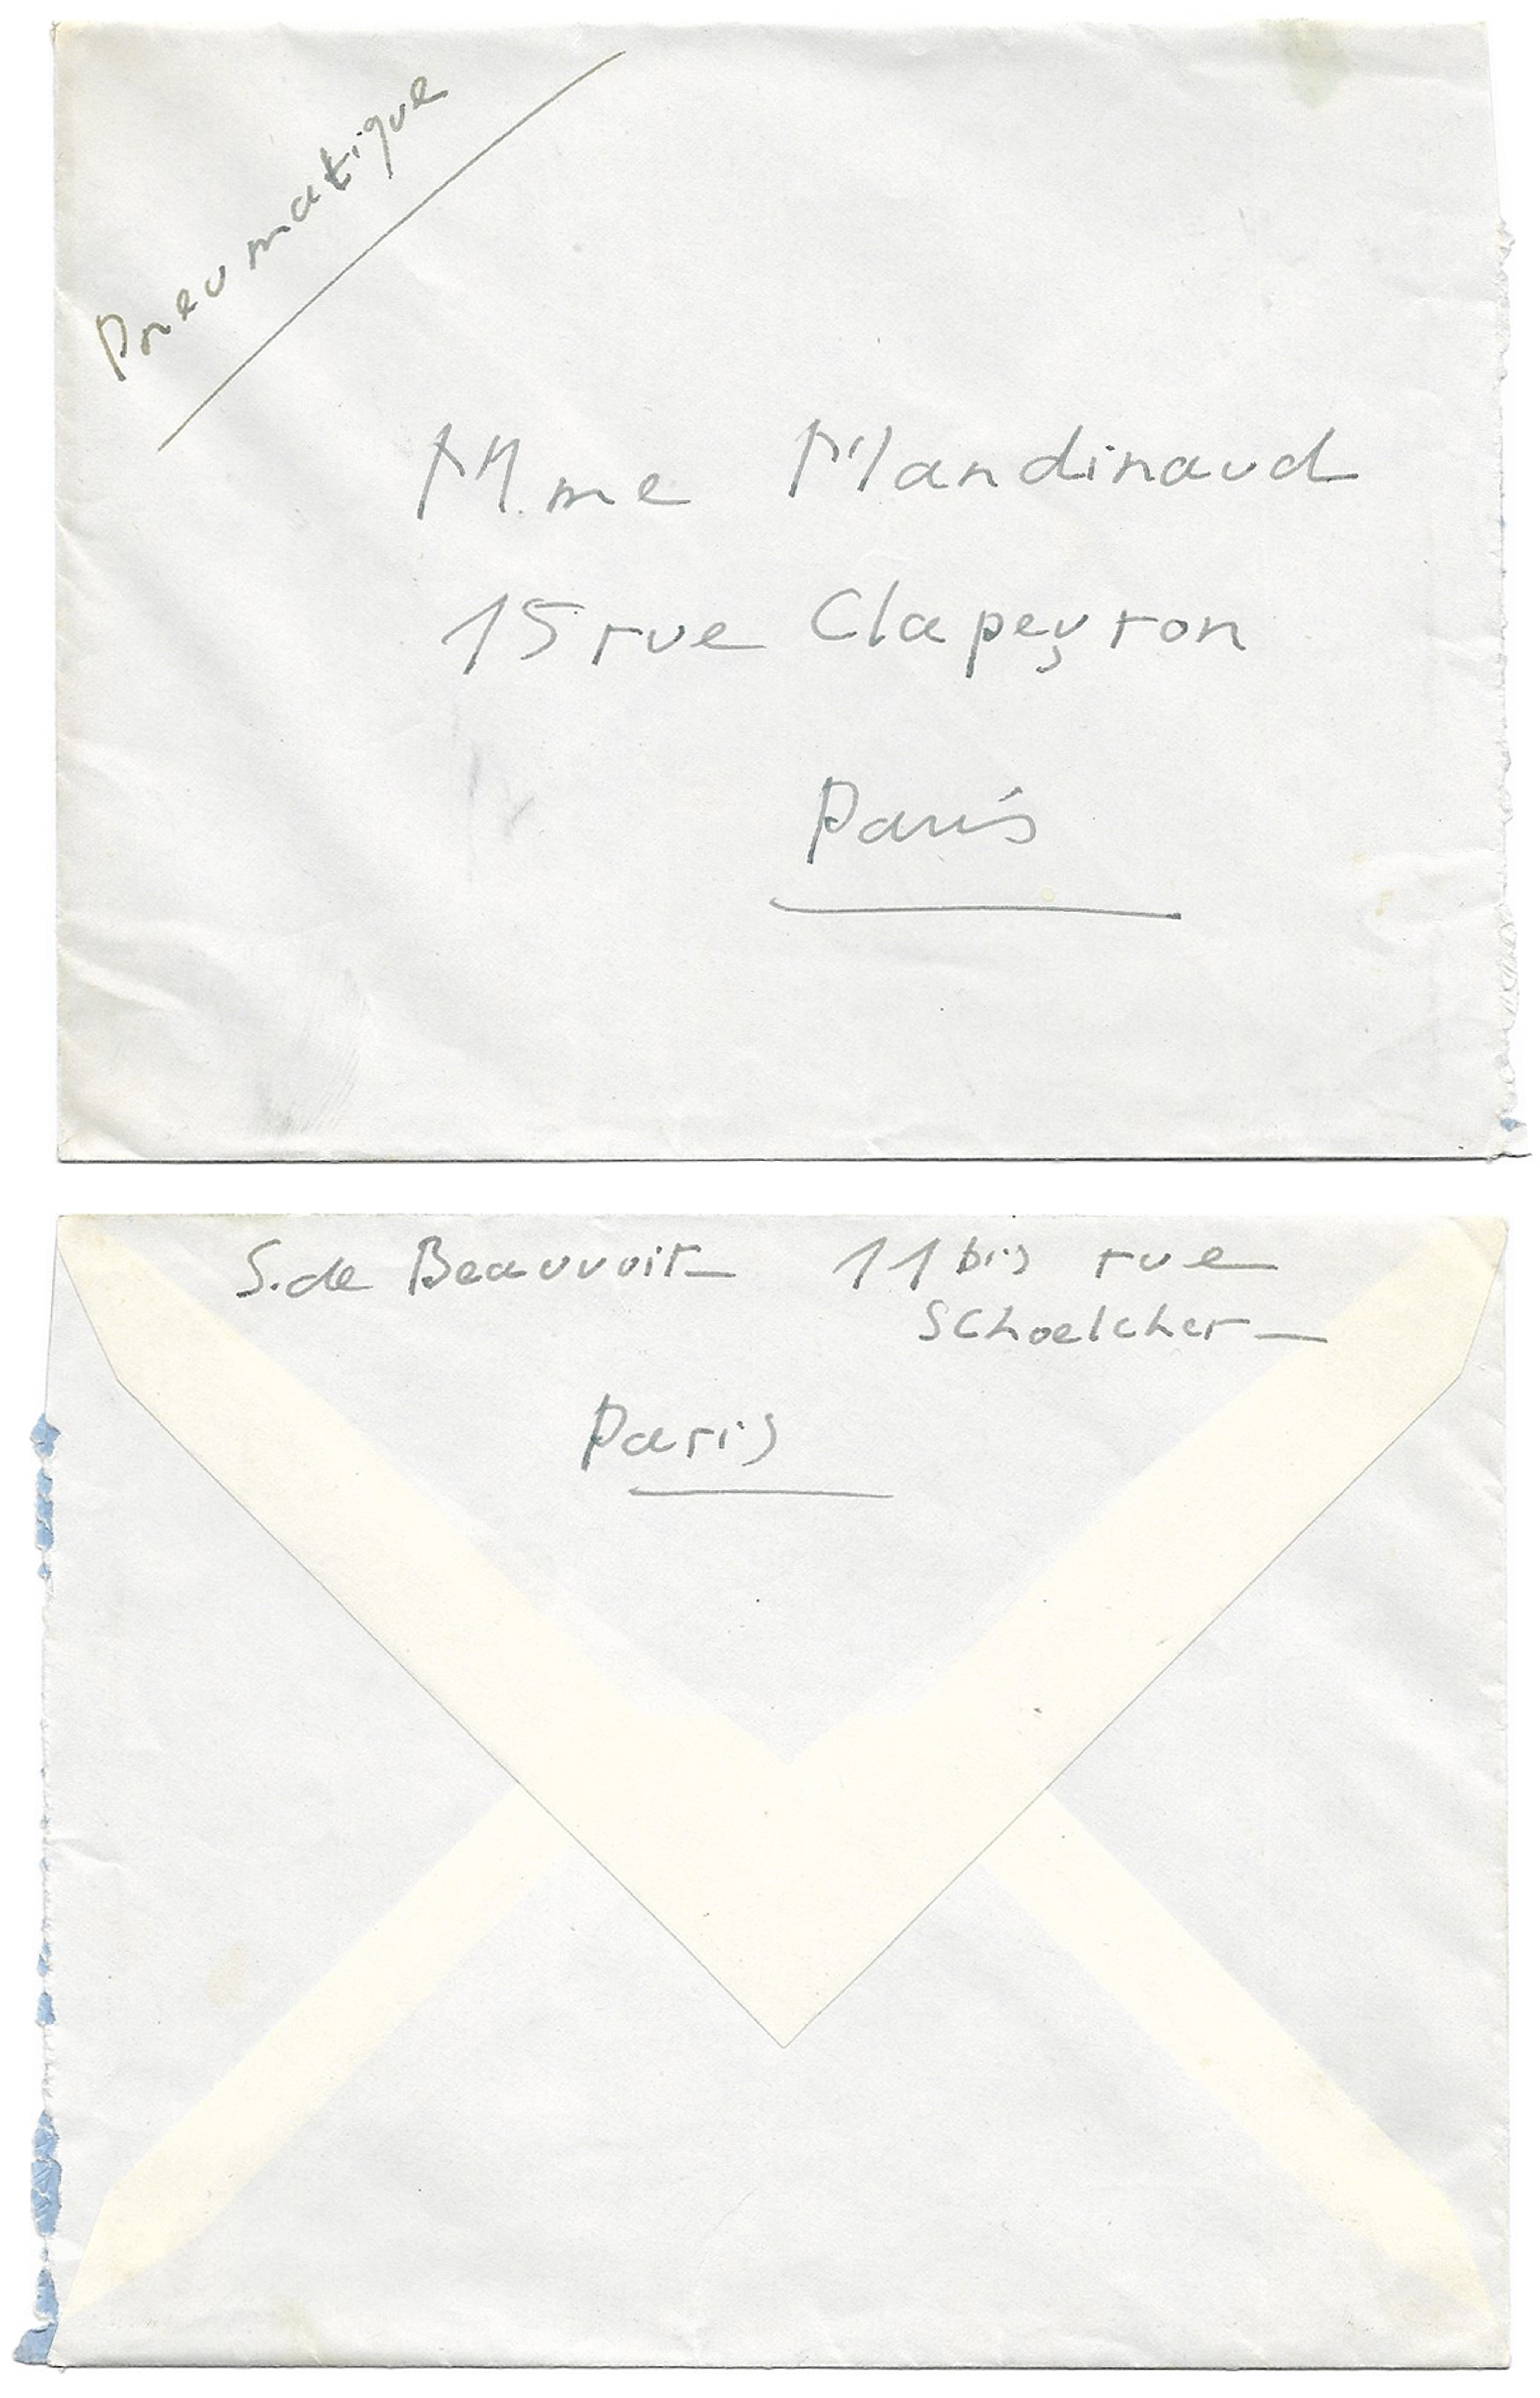 Pneumatique
Mme Mandinaud
15 rue Clapeyron
Paris
S. de Beauvoir 11 bis rue
Schoelcher
Paris